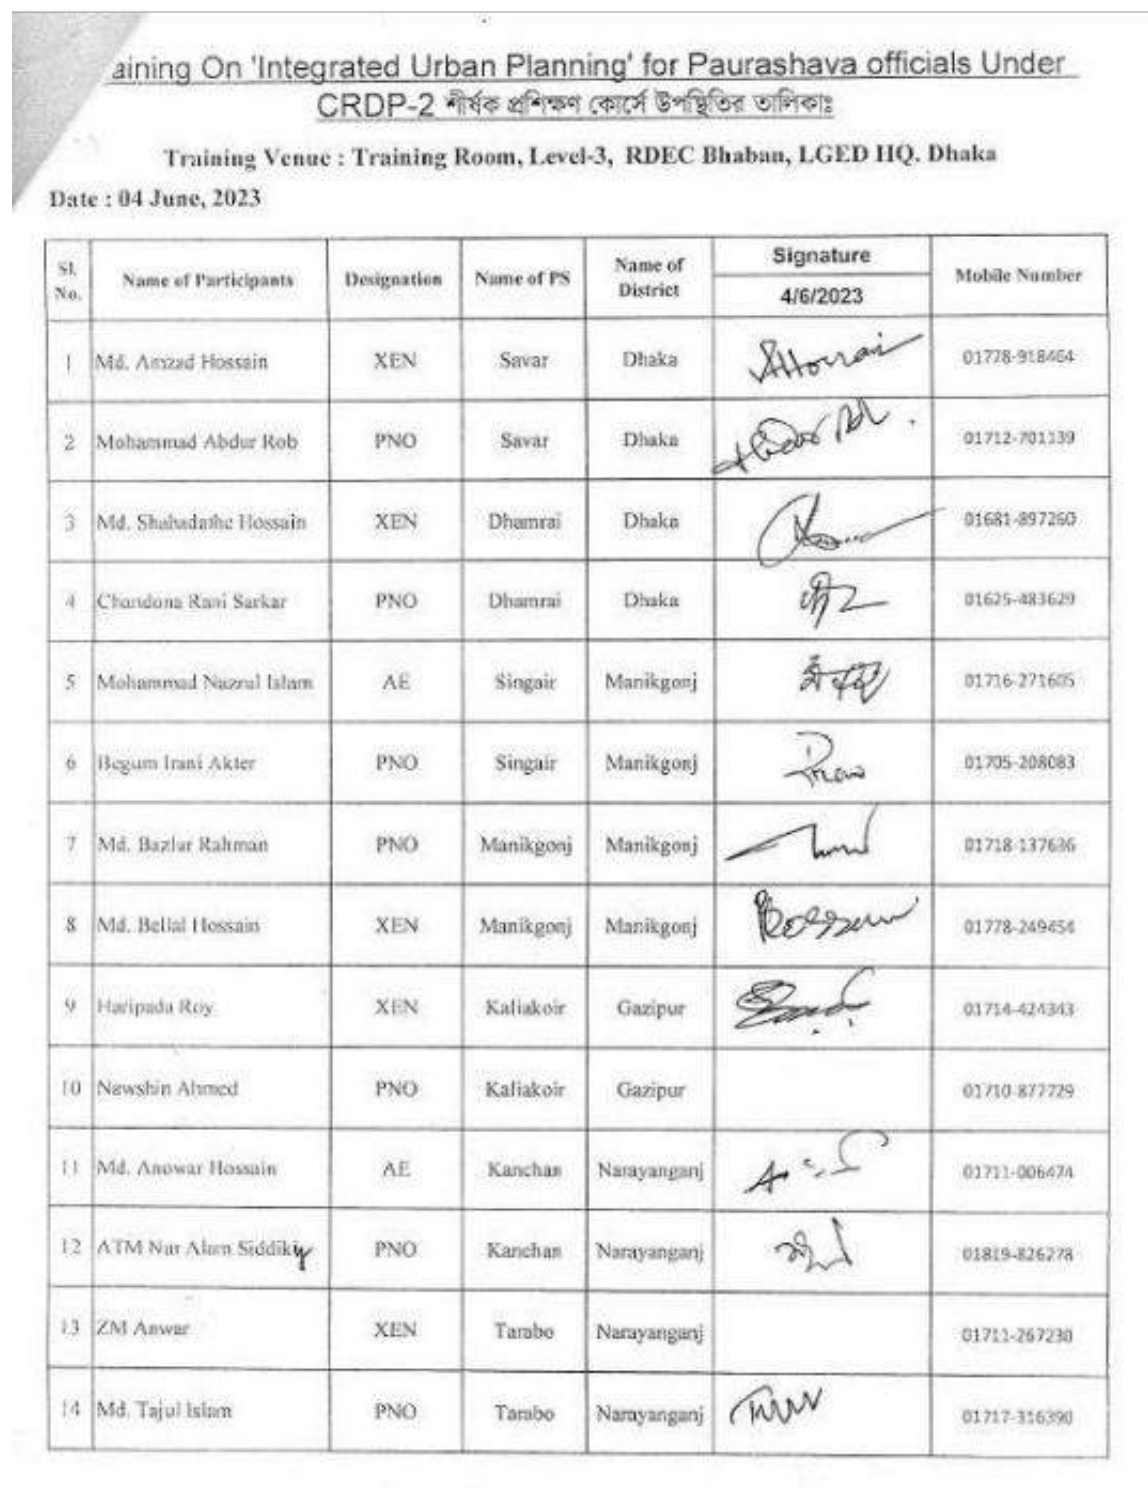 aining On 'Integrated Urban Planning' for Paurashava officials Under
CRDP-2 শীর্ষক প্রশিক্ষণ কোর্সে উপস্থিতির তালিকাঃ
Training Venue : Training Room, Level-3, RDEC Bhaban, LGED HQ. Dhaka
Date : 04 June, 2023
Sl. No. Name of Participants Designation Name of PS Name of District Signature 4/6/2023 Mobile Number
1 Md. Amzad Hossain XEN Savar Dhaka 01778-918464
2 Mohammad Abdur Rob PNO Savar Dhaka 01712-701139
3 Md. Shahadathe Hossain XEN Dhamrai Dhaka 01681-897260
4 Chandona Rani Sarkar PNO Dhamrai Dhaka 01625-483629
5 Mohammad Nazrul Islam AE Singair Manikgonj 01716-271605
6 Begum Irani Akter PNO Singair Manikgonj 01705-208083
7 Md. Bazlur Rahman PNO Manikgonj Manikgonj 01718-137636
8 Md. Bellal Hossain XEN Manikgonj Manikgonj 01778-249454
9 Haripada Roy XEN Kaliakoir Gazipur 01714-424343
10 Nawshin Ahmed PNO Kaliakoir Gazipur 01710-877729
11 Md. Anowar Hossain AE Kanchan Narayanganj 01711-006474
12 ATM Nur Alam Siddikiy PNO Kanchan Narayanganj 01819-826278
13 ZM Anwar XEN Tarabo Narayanganj 01711-267230
14 Md. Tajul Islam PNO Tarabo Narayanganj 01717-316390